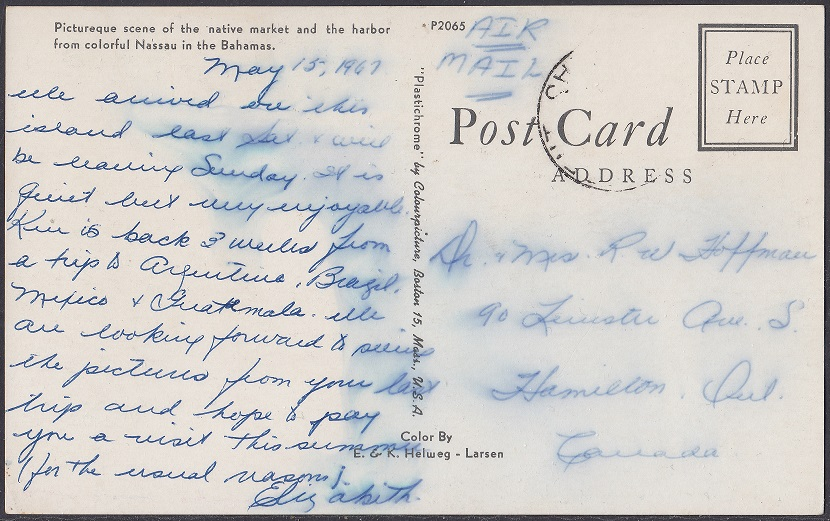 Picturesque scene of the native market and the harbor
from colorful Nassau in the Bahamas.
May 15, 1967
We arrived on this
island last Sat. & will
be leaving Sunday. It is
quiet but very enjoyable.
Ken is back 3 weeks from
a trip to Argentina, Brazil,
Mexico & Guatemala. We
are looking forward to seeing
the pictures from your last
trip and hope to pay
you a visit this summer
(for the usual reasons).
Elizabeth.
"Plastichrome" by Colourpicture, Boston 15, Mass., U.S.A.
Color By
E. & K. Helweg - Larsen
P2065
AIR
MAIL
Post Card
ADDRESS
Place
STAMP
Here
Dr. & Mrs. R W Hoffman
90 Ave. S.
Hamilton, Ont.
Canada